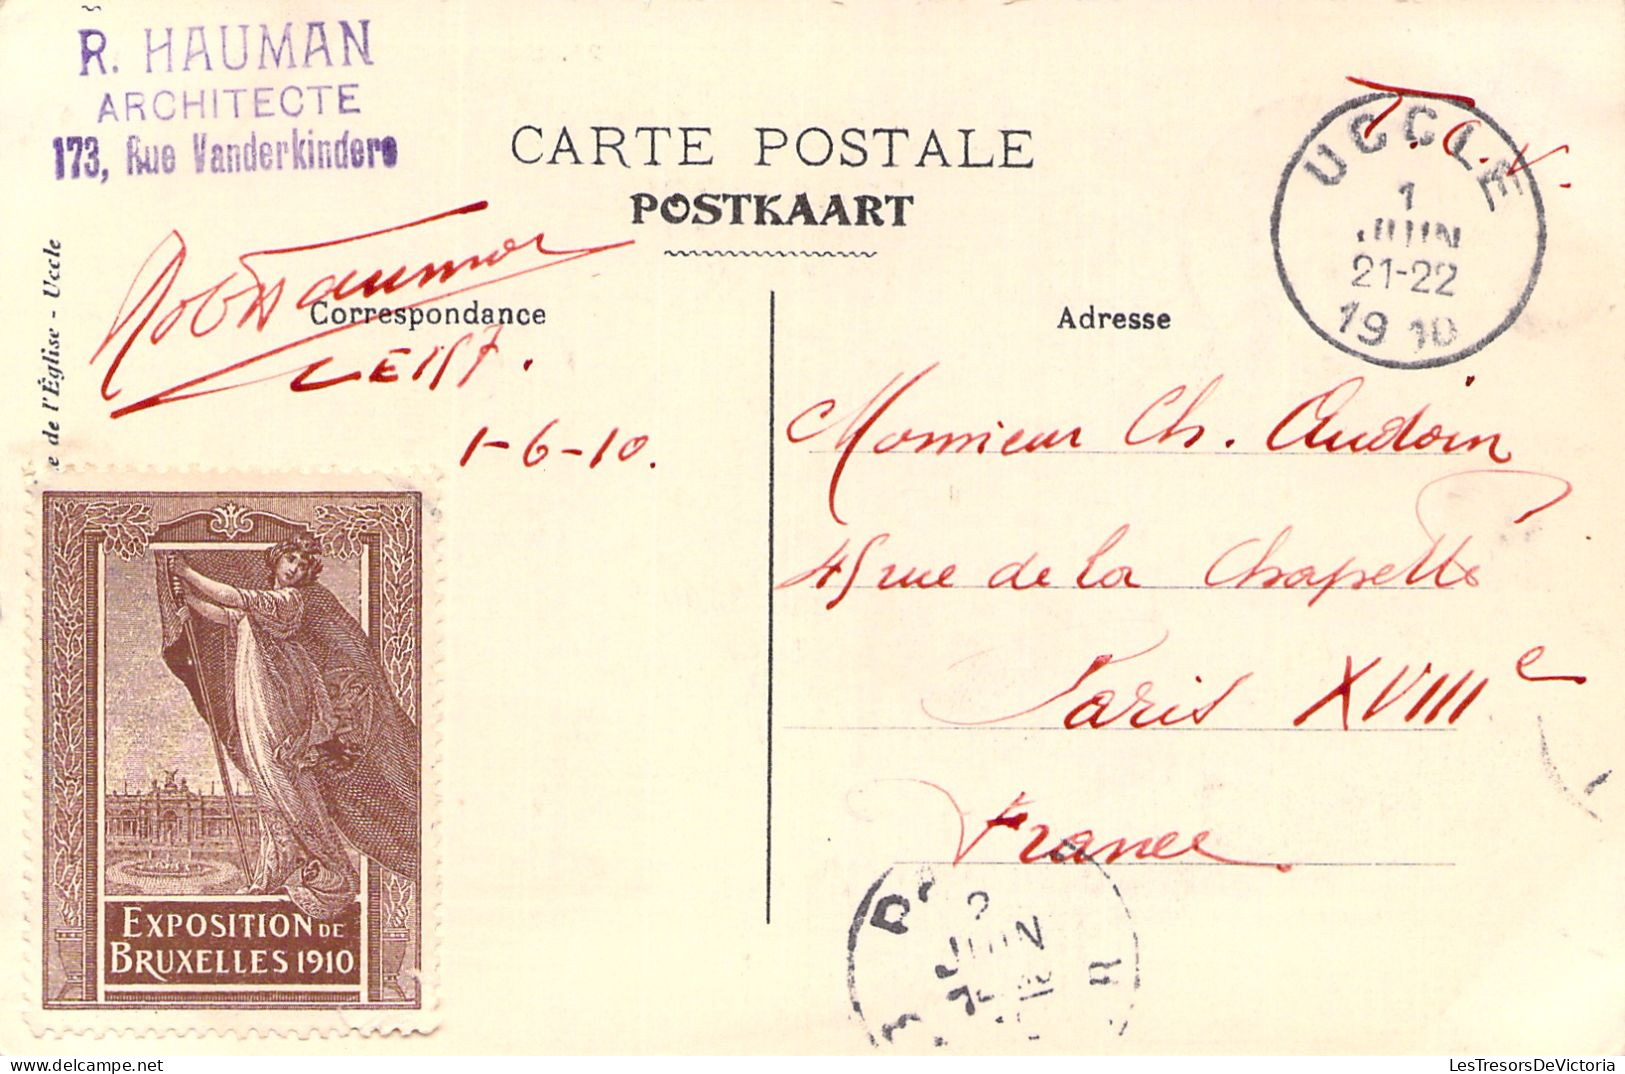 R. HAUMAN
ARCHITECTE
173, Rue Vanderkindere
CARTE POSTALE
POSTKAART
T.C.V.
UCCLE
1
JUIN
21-22
1910
e de l'Église - Uccle
Rob Hauman
Correspondance
Adresse
1-6-10.
Monsieur Ch. Audoin
45 rue de la Chapelle
Paris XVIIIe
France
EXPOSITION DE
BRUXELLES 1910
2
JUIN
LesTresorsDeVictoria.com